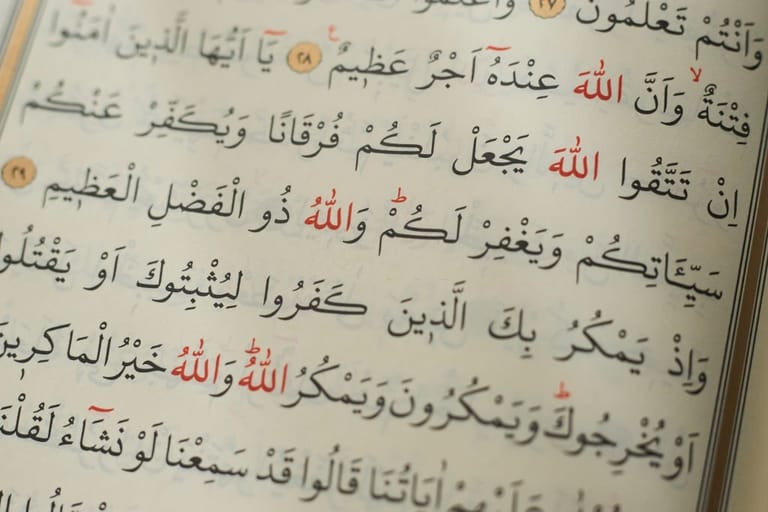 وَاَنْتُمْ تَعْلَمُونَ ﴿٢٧﴾ وَاعْلَمُٓوا
فِتْنَةٌۙ وَاَنَّ اللّٰهَ عِنْدَهُٓ اَجْرٌ عَظ۪يمٌ۟ ﴿٢٨﴾ يَٓا اَيُّهَا الَّذ۪ينَ اٰمَنُٓوا
اِنْ تَتَّقُوا اللّٰهَ يَجْعَلْ لَكُمْ فُرْقَانًا وَيُكَفِّرْ عَنْكُمْ
سَيِّـَٔاتِكُمْ وَيَغْفِرْ لَكُمْۜ وَاللّٰهُ ذُو الْفَضْلِ الْعَظ۪يمِ ﴿٢٩﴾
وَاِذْ يَمْكُرُ بِكَ الَّذ۪ينَ كَفَرُوا لِيُثْبِتُوكَ اَوْ يَقْتُلُو
اَوْ يُخْرِجُوكَۜ وَيَمْكُرُونَ وَيَمْكُرُ اللّٰهُۜ وَاللّٰهُ خَيْرُ الْمَاكِر۪ينَ
عَلَيْهِمْ اٰيَاتُنَا قَالُوا قَدْ سَمِعْنَا لَوْ نَشَٓاءُ لَقُلْنَا